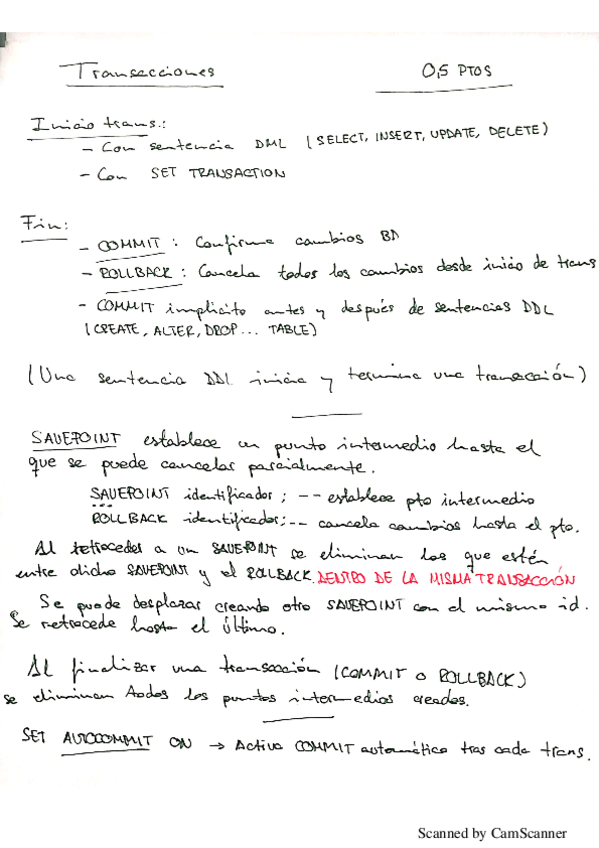 Transacciones 0,5 PTOS
Inicio trans.:
- Con sentencia DML (SELECT, INSERT, UPDATE, DELETE)
- Con SET TRANSACTION
Fin:
- COMMIT : Confirma cambios BD
- ROLLBACK : Cancela todos los cambios desde inicio de trans
- COMMIT implícito antes y después de sentencias DDL
(CREATE, ALTER, DROP... TABLE)
(Una sentencia DDL inicia y termina una transacción)
SAVEPOINT establece un punto intermedio hasta el
que se puede cancelar parcialmente.
SAVEPOINT identificador ; -- establece pto intermedio
ROLLBACK identificador; -- cancela cambios hasta el pto.
Al retroceder a un SAVEPOINT se eliminan los que estén
entre dicho SAVEPOINT y el ROLLBACK. DENTRO DE LA MISMA TRANSACCIÓN
Se puede desplazar creando otro SAVEPOINT con el mismo id.
Se retrocede hasta el último.
Al finalizar una transacción (COMMIT o ROLLBACK)
se eliminan todos los puntos intermedios creados.
SET AUTOCOMMIT ON → Activa COMMIT automático tras cada trans.
Scanned by CamScanner